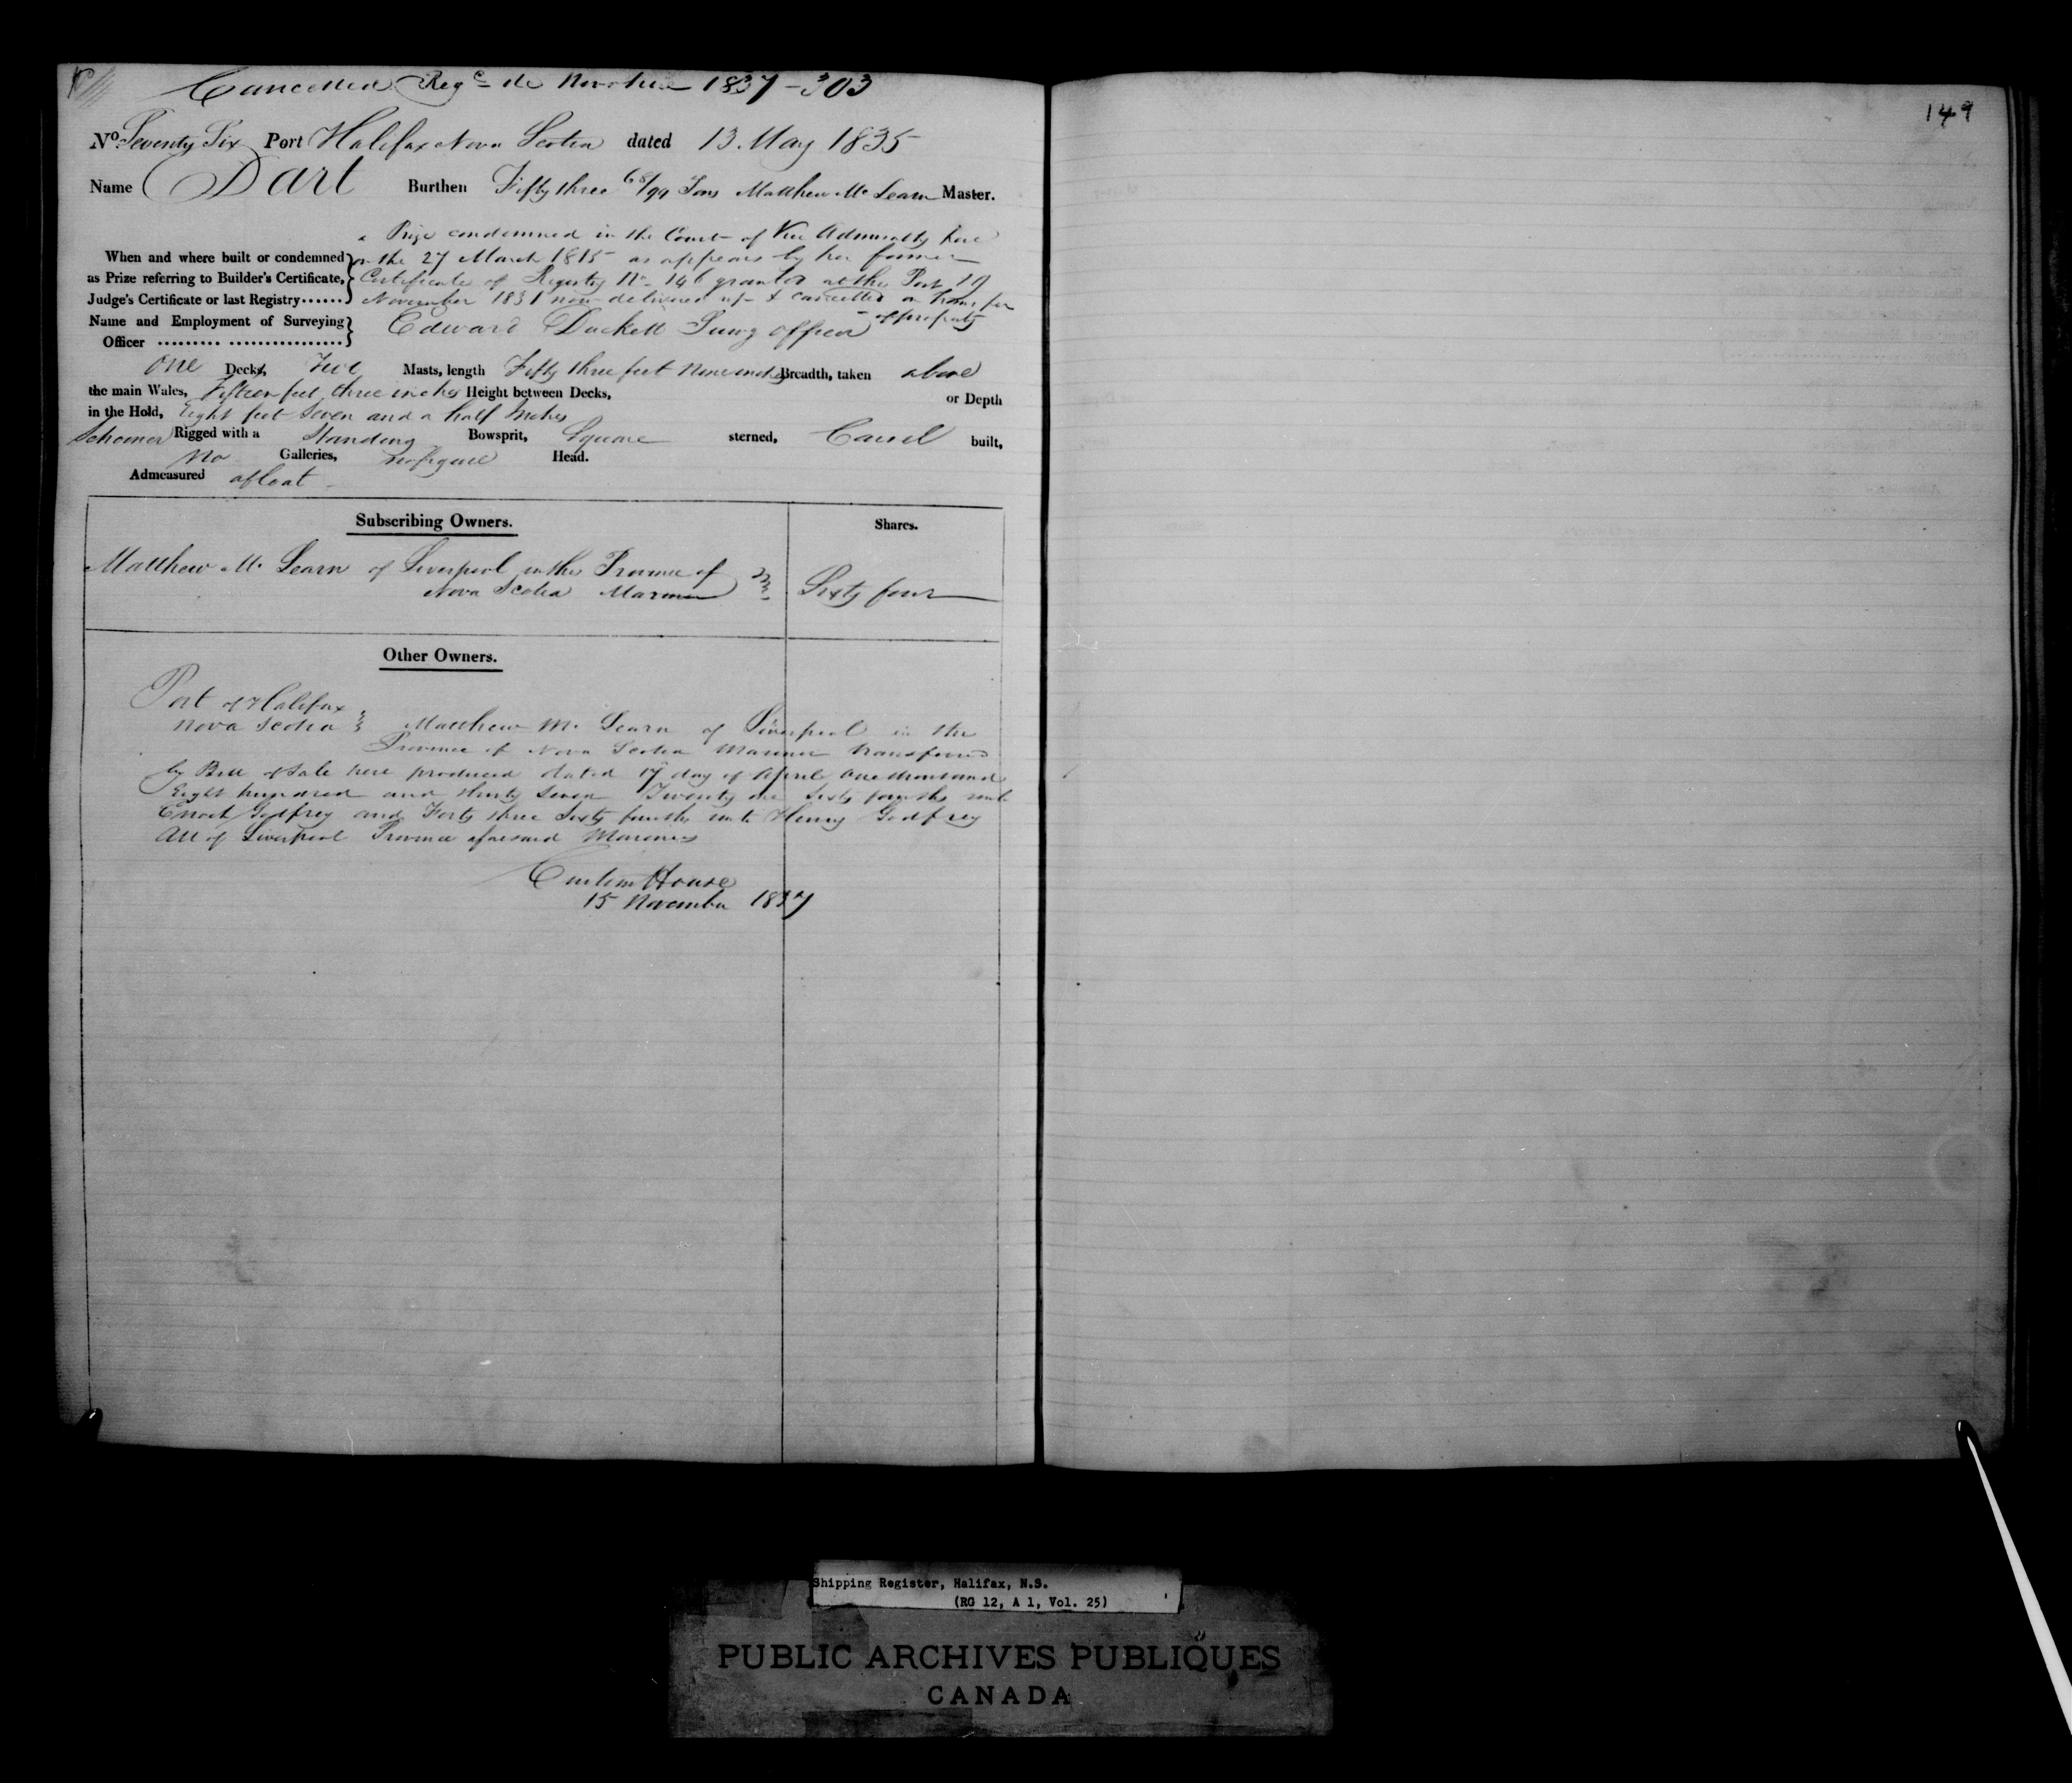 Cancelled Regd de Novo here 1837-303
149
No. Seventy Six Port Halifax Nova Scotia dated 13 May 1835
Name Dart Burthen Fifty three 68/94 Tons Matthew Mc Learn Master.
a Prize condemned in the Court of Vice Admiralty here
When and where built or condemned on the 27 March 1815 as appears by her former
as Prize referring to Builder's Certificate, Certificate of Registry No. 146 granted at this Port 19
Judge's Certificate or last Registry...... November 1831 now delivered up & cancelled on transfer
of property
Name and Employment of Surveying
Officer ......... ................ Edward Duckett Survg officer
One Decks, Two Masts, length Fifty three feet Nine inches Breadth, taken above
the main Wales, Fifteen feet three inches Height between Decks, or Depth
in the Hold, Eight feet Seven and a half Inches
Schooner Rigged with a Standing Bowsprit, Square sterned, Carvel built,
No Galleries, no figure Head.
Admeasured afloat
Subscribing Owners. Shares.
Matthew Mc Learn of Liverpool in the Province of
Nova Scotia Mariner Sixty four
Other Owners.
Port of Halifax
Nova Scotia Matthew Mc Learn of Liverpool in the
Province of Nova Scotia Mariner transferred
by Bill of Sale here produced dated 17 day of April One thousand
Eight hundred and thirty Seven Twenty one Sixty fourths unto
Enoch Godfrey and Forty three Sixty fourths unto Henry Godfrey
All of Liverpool Province aforesaid Mariners
Custom House
15 November 1837
Shipping Register, Halifax, N.S.
(RG 12, A 1, Vol. 25)
PUBLIC ARCHIVES PUBLIQUES
CANADA